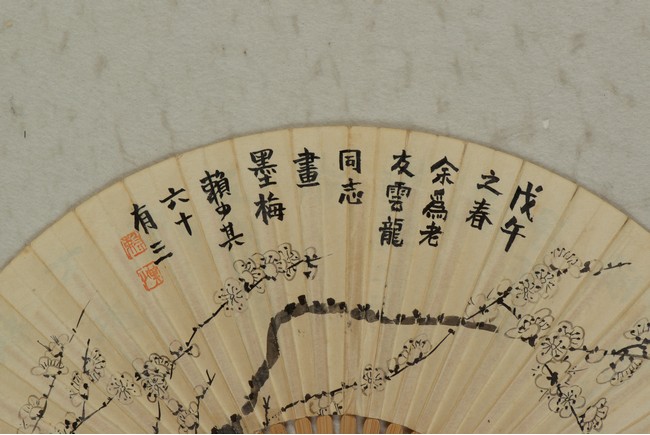 戊午
之春
余為老
友雲龍
同志
畫
墨梅
賴少其
六十
有三